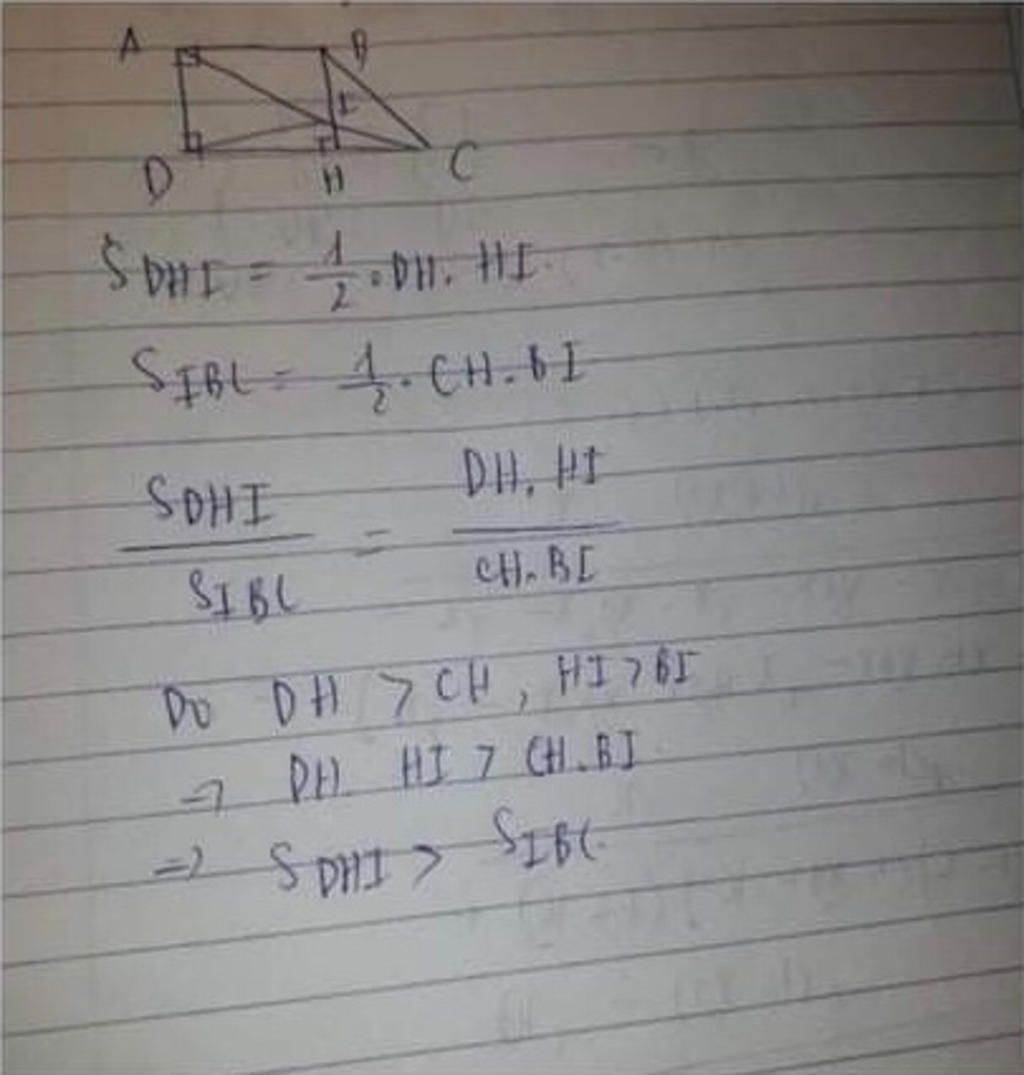 A B
I
D H C
S DHI = 1/2 . DH. HI.
S IBC = 1/2 . CH. BI
S DHI / S IBC = DH. HI / CH. BI
Do DH > CH, HI > BI
=> DH. HI > CH. BI
=> S DHI > S IBC.